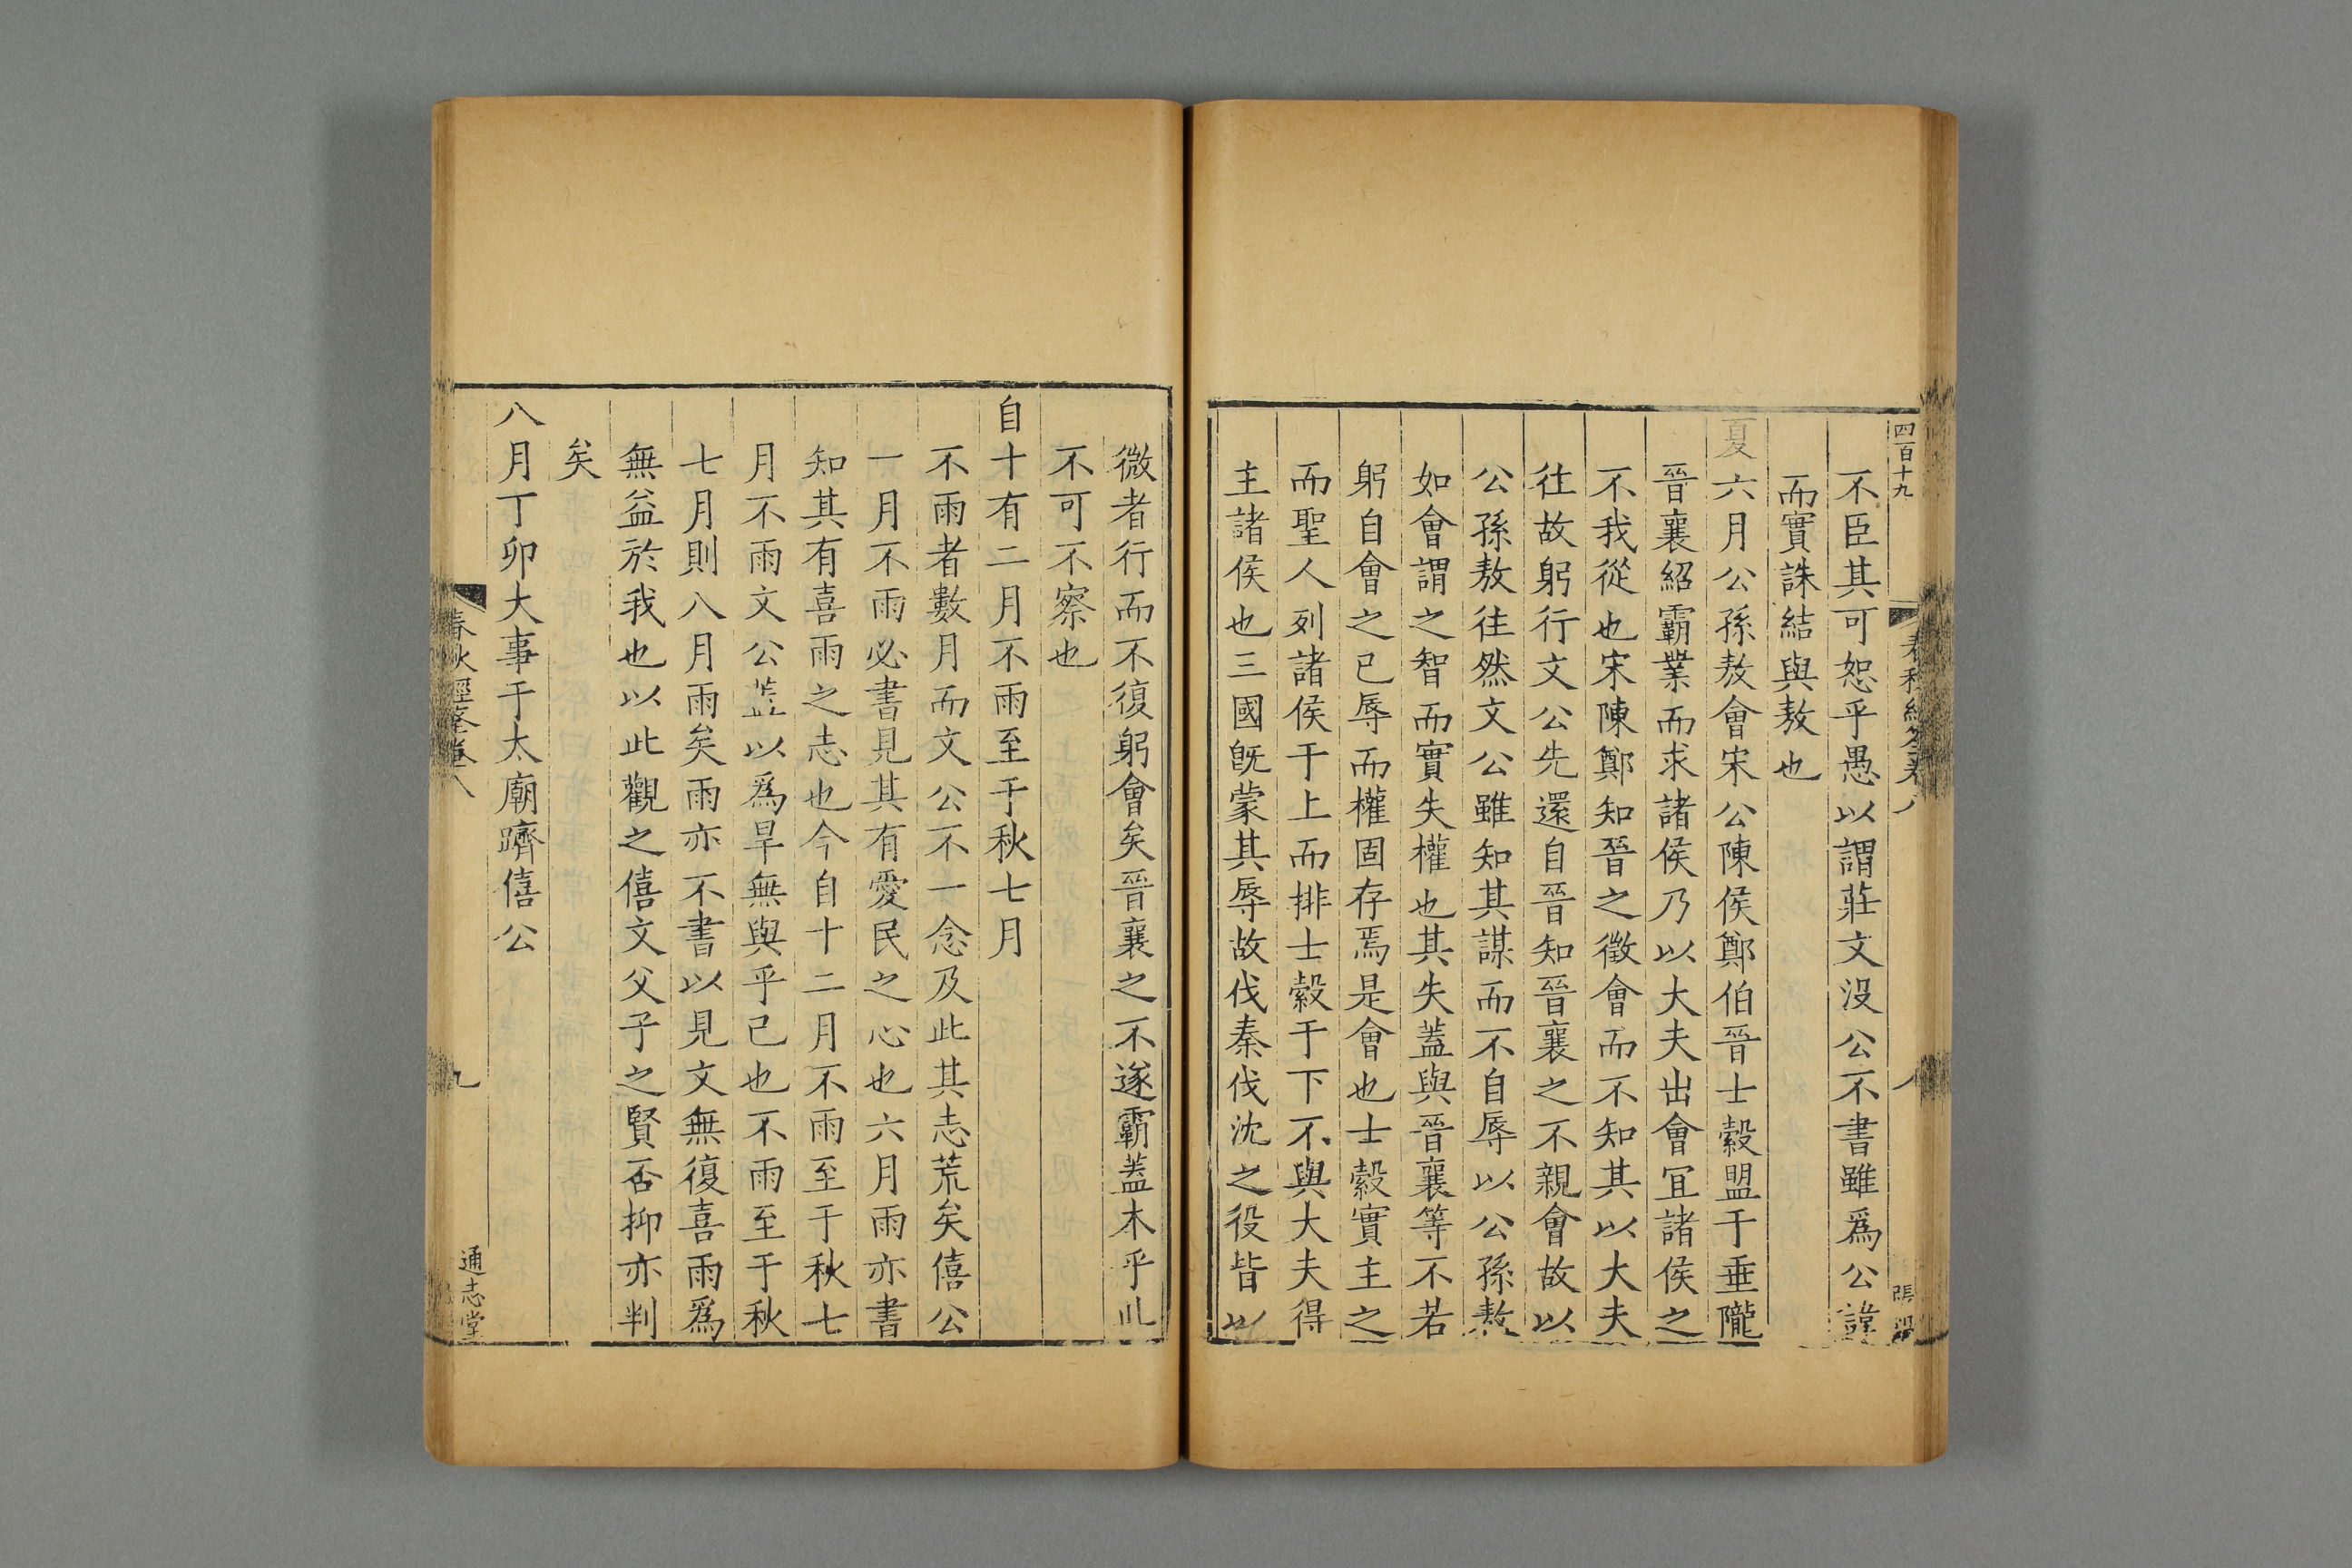 四百十九
不臣其可恕乎愚以謂莊文没公不書雖爲公諱
而實誅結與敖也
夏六月公孫敖會宋公陳侯鄭伯晉士縠盟于垂隴
晉襄紹霸業而求諸侯乃以大夫出會宜諸侯之
不我從也宋陳鄭知晉之徵會而不知其以大夫
往故躬行文公先還自晉知晉襄之不親會故以
公孫敖往然文公雖知其謀而不自辱以公孫敖
如會謂之智而實失權也其失蓋與晉襄等不若
躬自會之已辱而權固存焉是會也士縠實主之
而聖人列諸侯于上而排士縠于下不與大夫得
主諸侯也三國旣蒙其辱故伐秦伐沈之役皆以
微者行而不復躬會矣晉襄之不遂霸蓋木乎此
不可不察也
自十有二月不雨至于秋七月
不雨者數月而文公不一念及此其志荒矣僖公
一月不雨必書見其有愛民之心也六月雨亦書
知其有喜雨之志也今自十二月不雨至于秋七
月不雨文公蓋以爲旱無與乎己也不雨至于秋
七月則八月雨矣雨亦不書以見文無復喜雨爲
無益於我也以此觀之僖文父子之賢否抑亦判
矣
八月丁卯大事于太廟躋僖公
春秋經筌卷八
九
通志堂